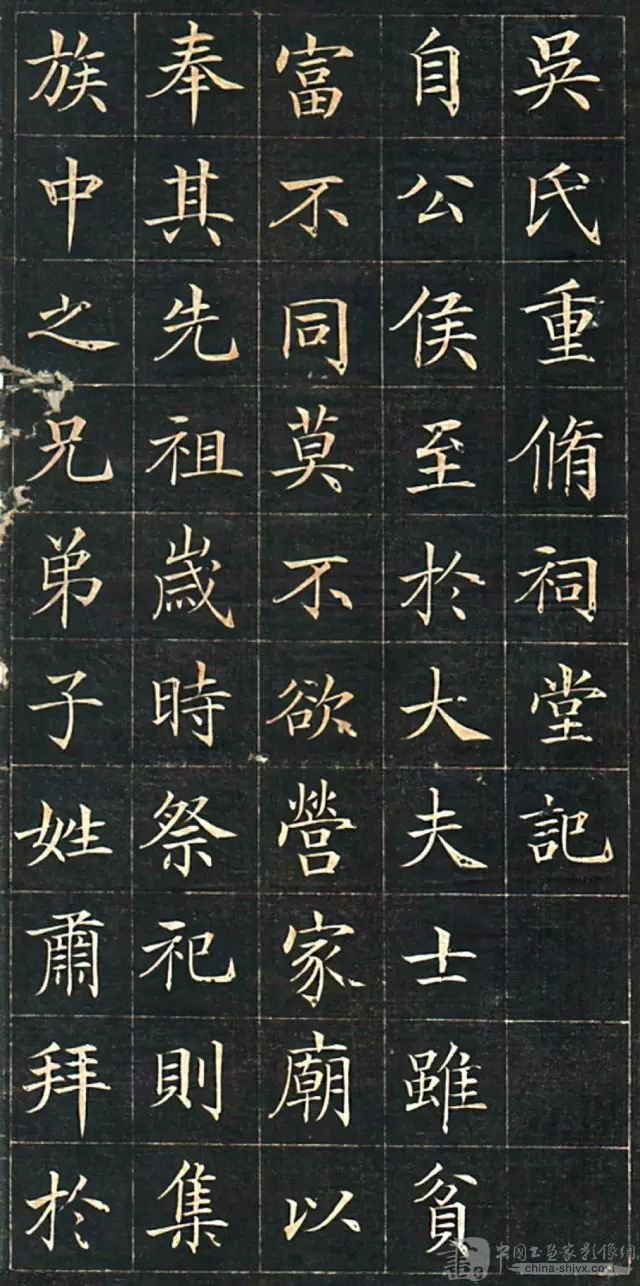 吳氏重脩祠堂記
自公侯至於大夫士雖貧
富不同莫不欲營家廟以
奉其先祖歲時祭祀則集
族中之兄弟子姓肅拜於
中国书画家影像网
china-shjyx.com